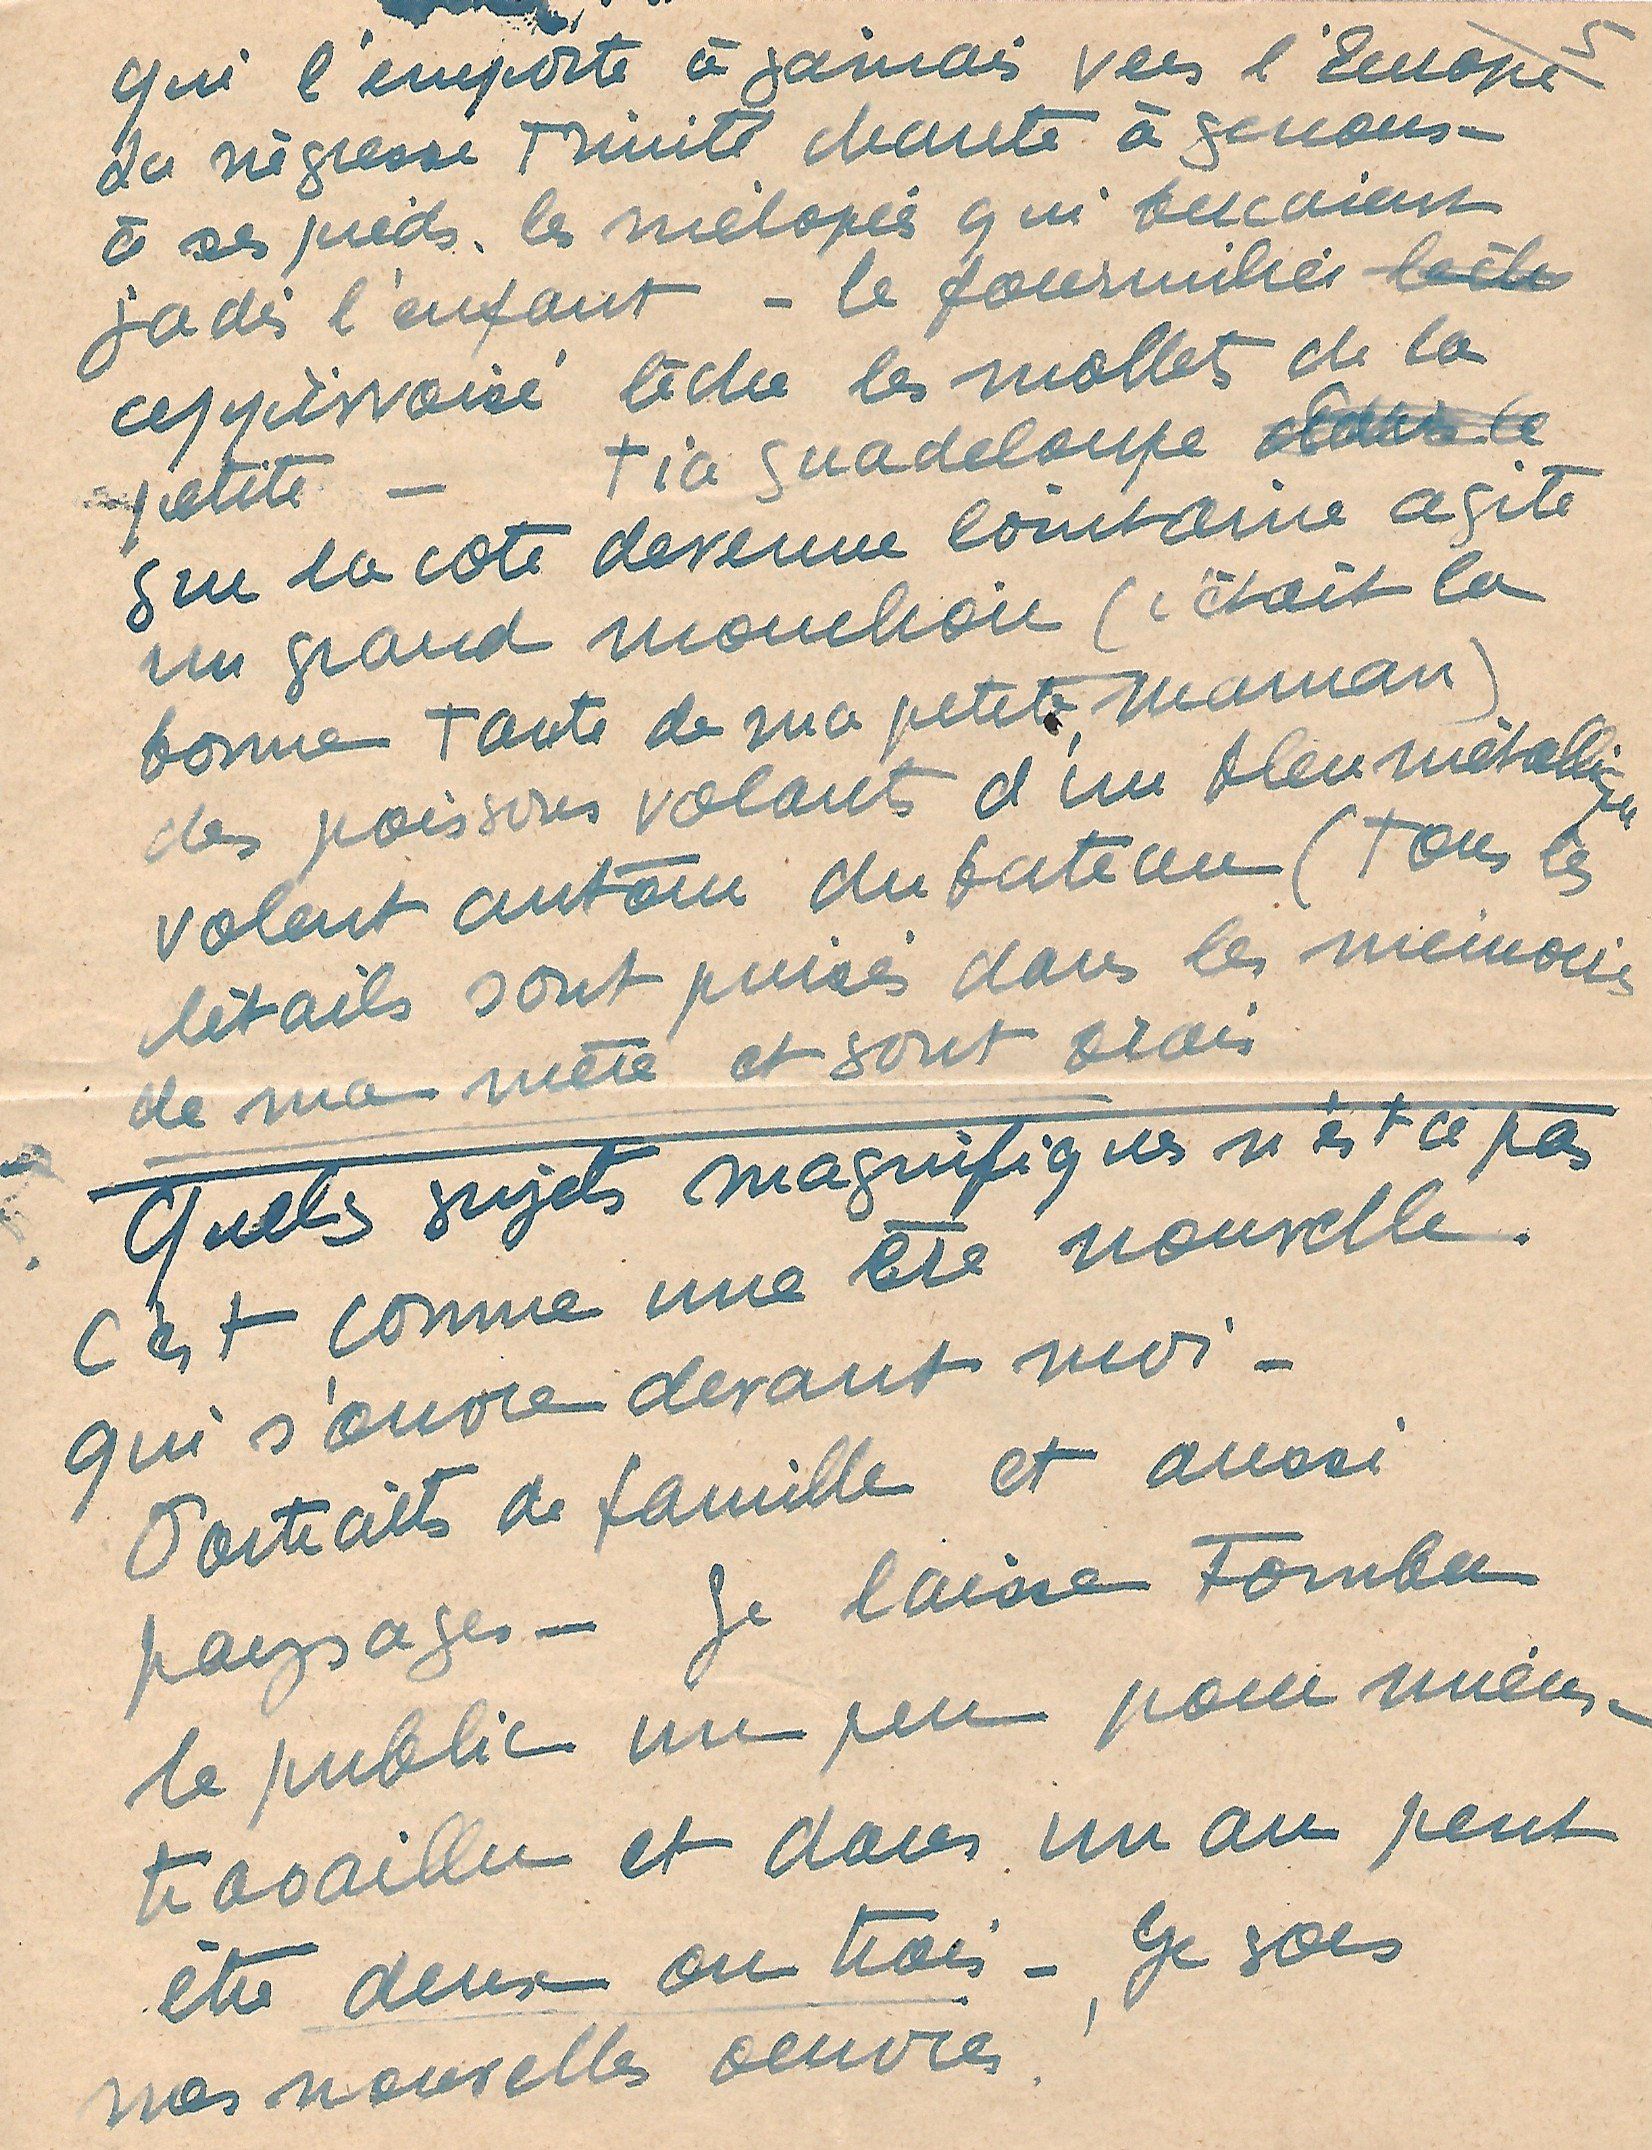 5
qui l'emporte à jamais vers l'Europe
La négresse Trinité chante à genoux
à ses pieds. les mélopées qui berçaient
jadis l'enfant - le fourmilier
apprivoisé lèche les mollets de la
petite - Tia Guadeloupe
sur la cote devenue lointaine agite
un grand mouchoir (c'était la
bonne Tante de ma petite Maman)
des poissons volants d'un bleu métallique
volent autour du bateau (Tous les
détails sont puisés dans les mémoires
de ma mère et sont vrais
Quels sujets magnifiques n'est ce pas
C'est comme une ère nouvelle.
qui s'ouvre devant moi -
Portraits de famille et aussi
paysages - Je laisse Tomber
le public un peu pour mieux
travailler et dans un an peut
être deux ou trois - Je sors
mes nouvelles œuvres!